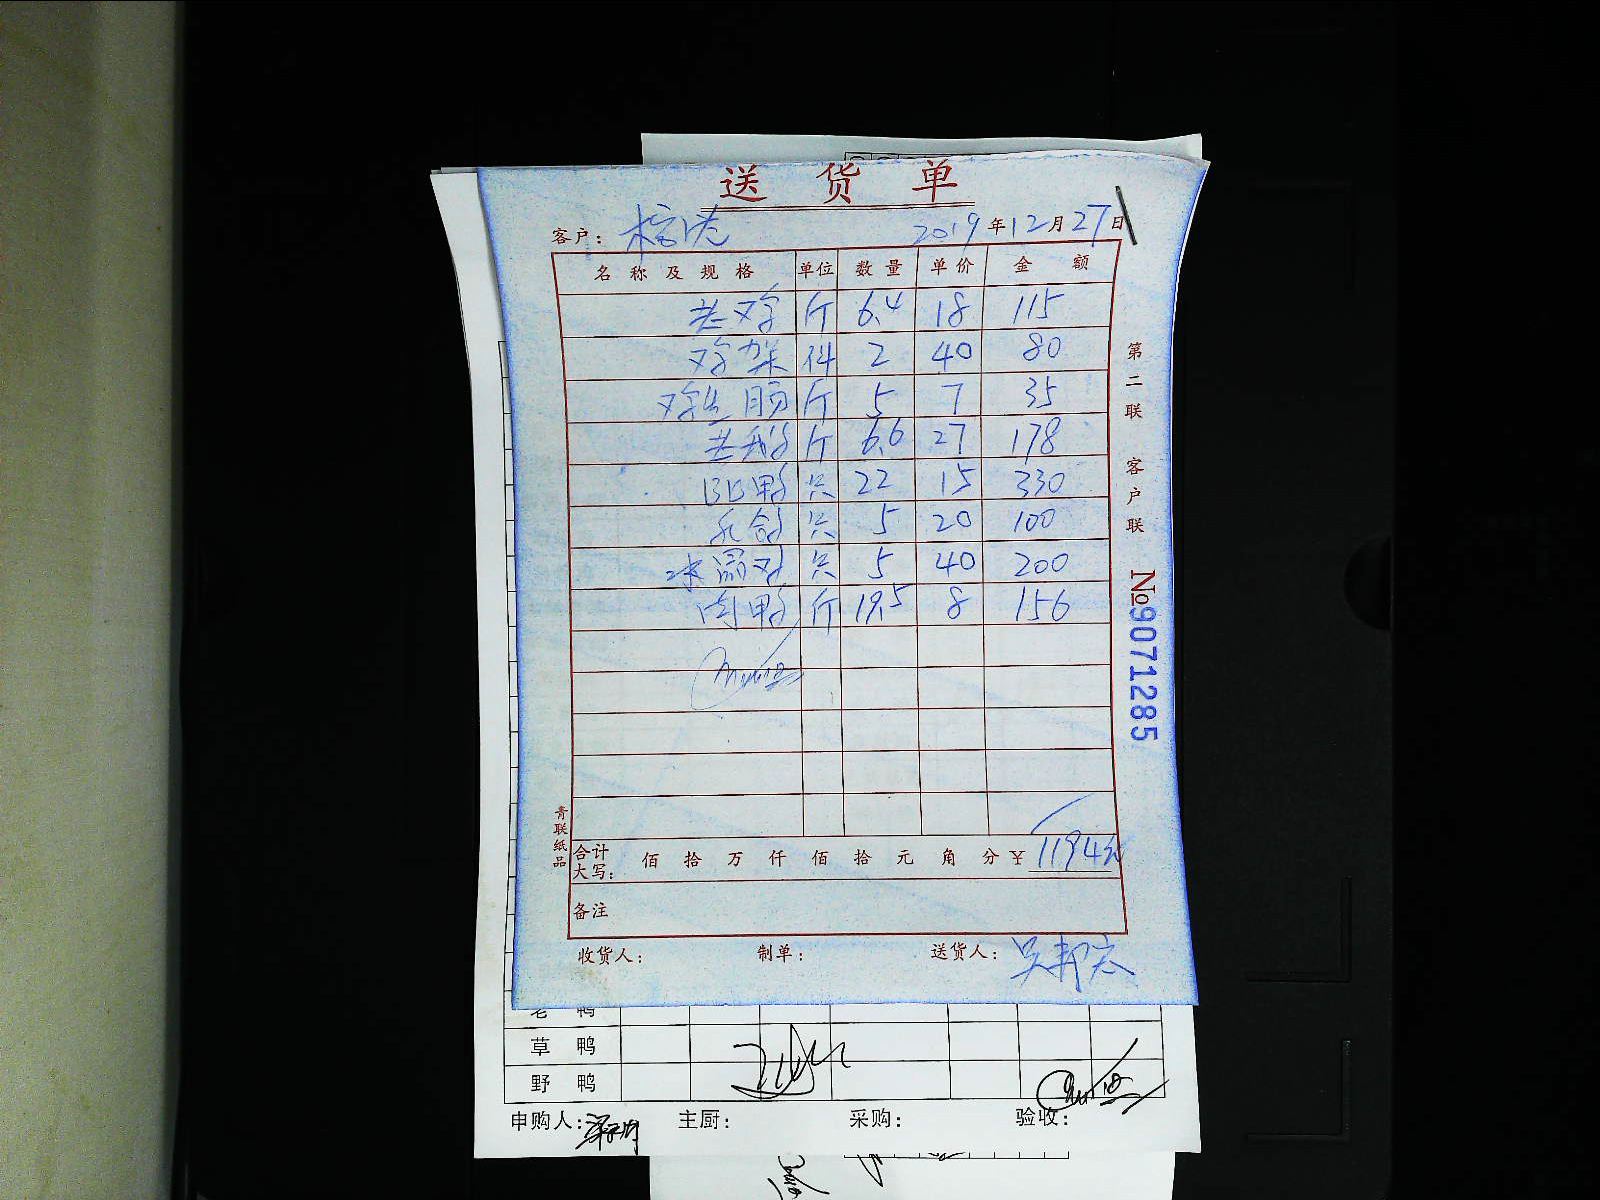 送货单
客户： 2019年12月27日
名称及规格 单位 数量 单价 金额
老鸡 斤 6.4 18 115
鸡架 件 2 40 80
鸡生肠 斤 5 7 35
老鹅 斤 6.6 27 178
BB鸭 只 22 15 330
乳鸽 只 5 20 100
水晶鸡 只 5 40 200
肉鸭 斤 19.5 8 156
合计大写： 佰 拾 万 仟 佰 拾 元 角 分 ¥ 1194元
备注
收货人： 制单： 送货人：吴邦宏
第二联 客户联
No9071285
青联纸品
老鸭
草鸭
野鸭
申购人： 主厨： 采购： 验收：